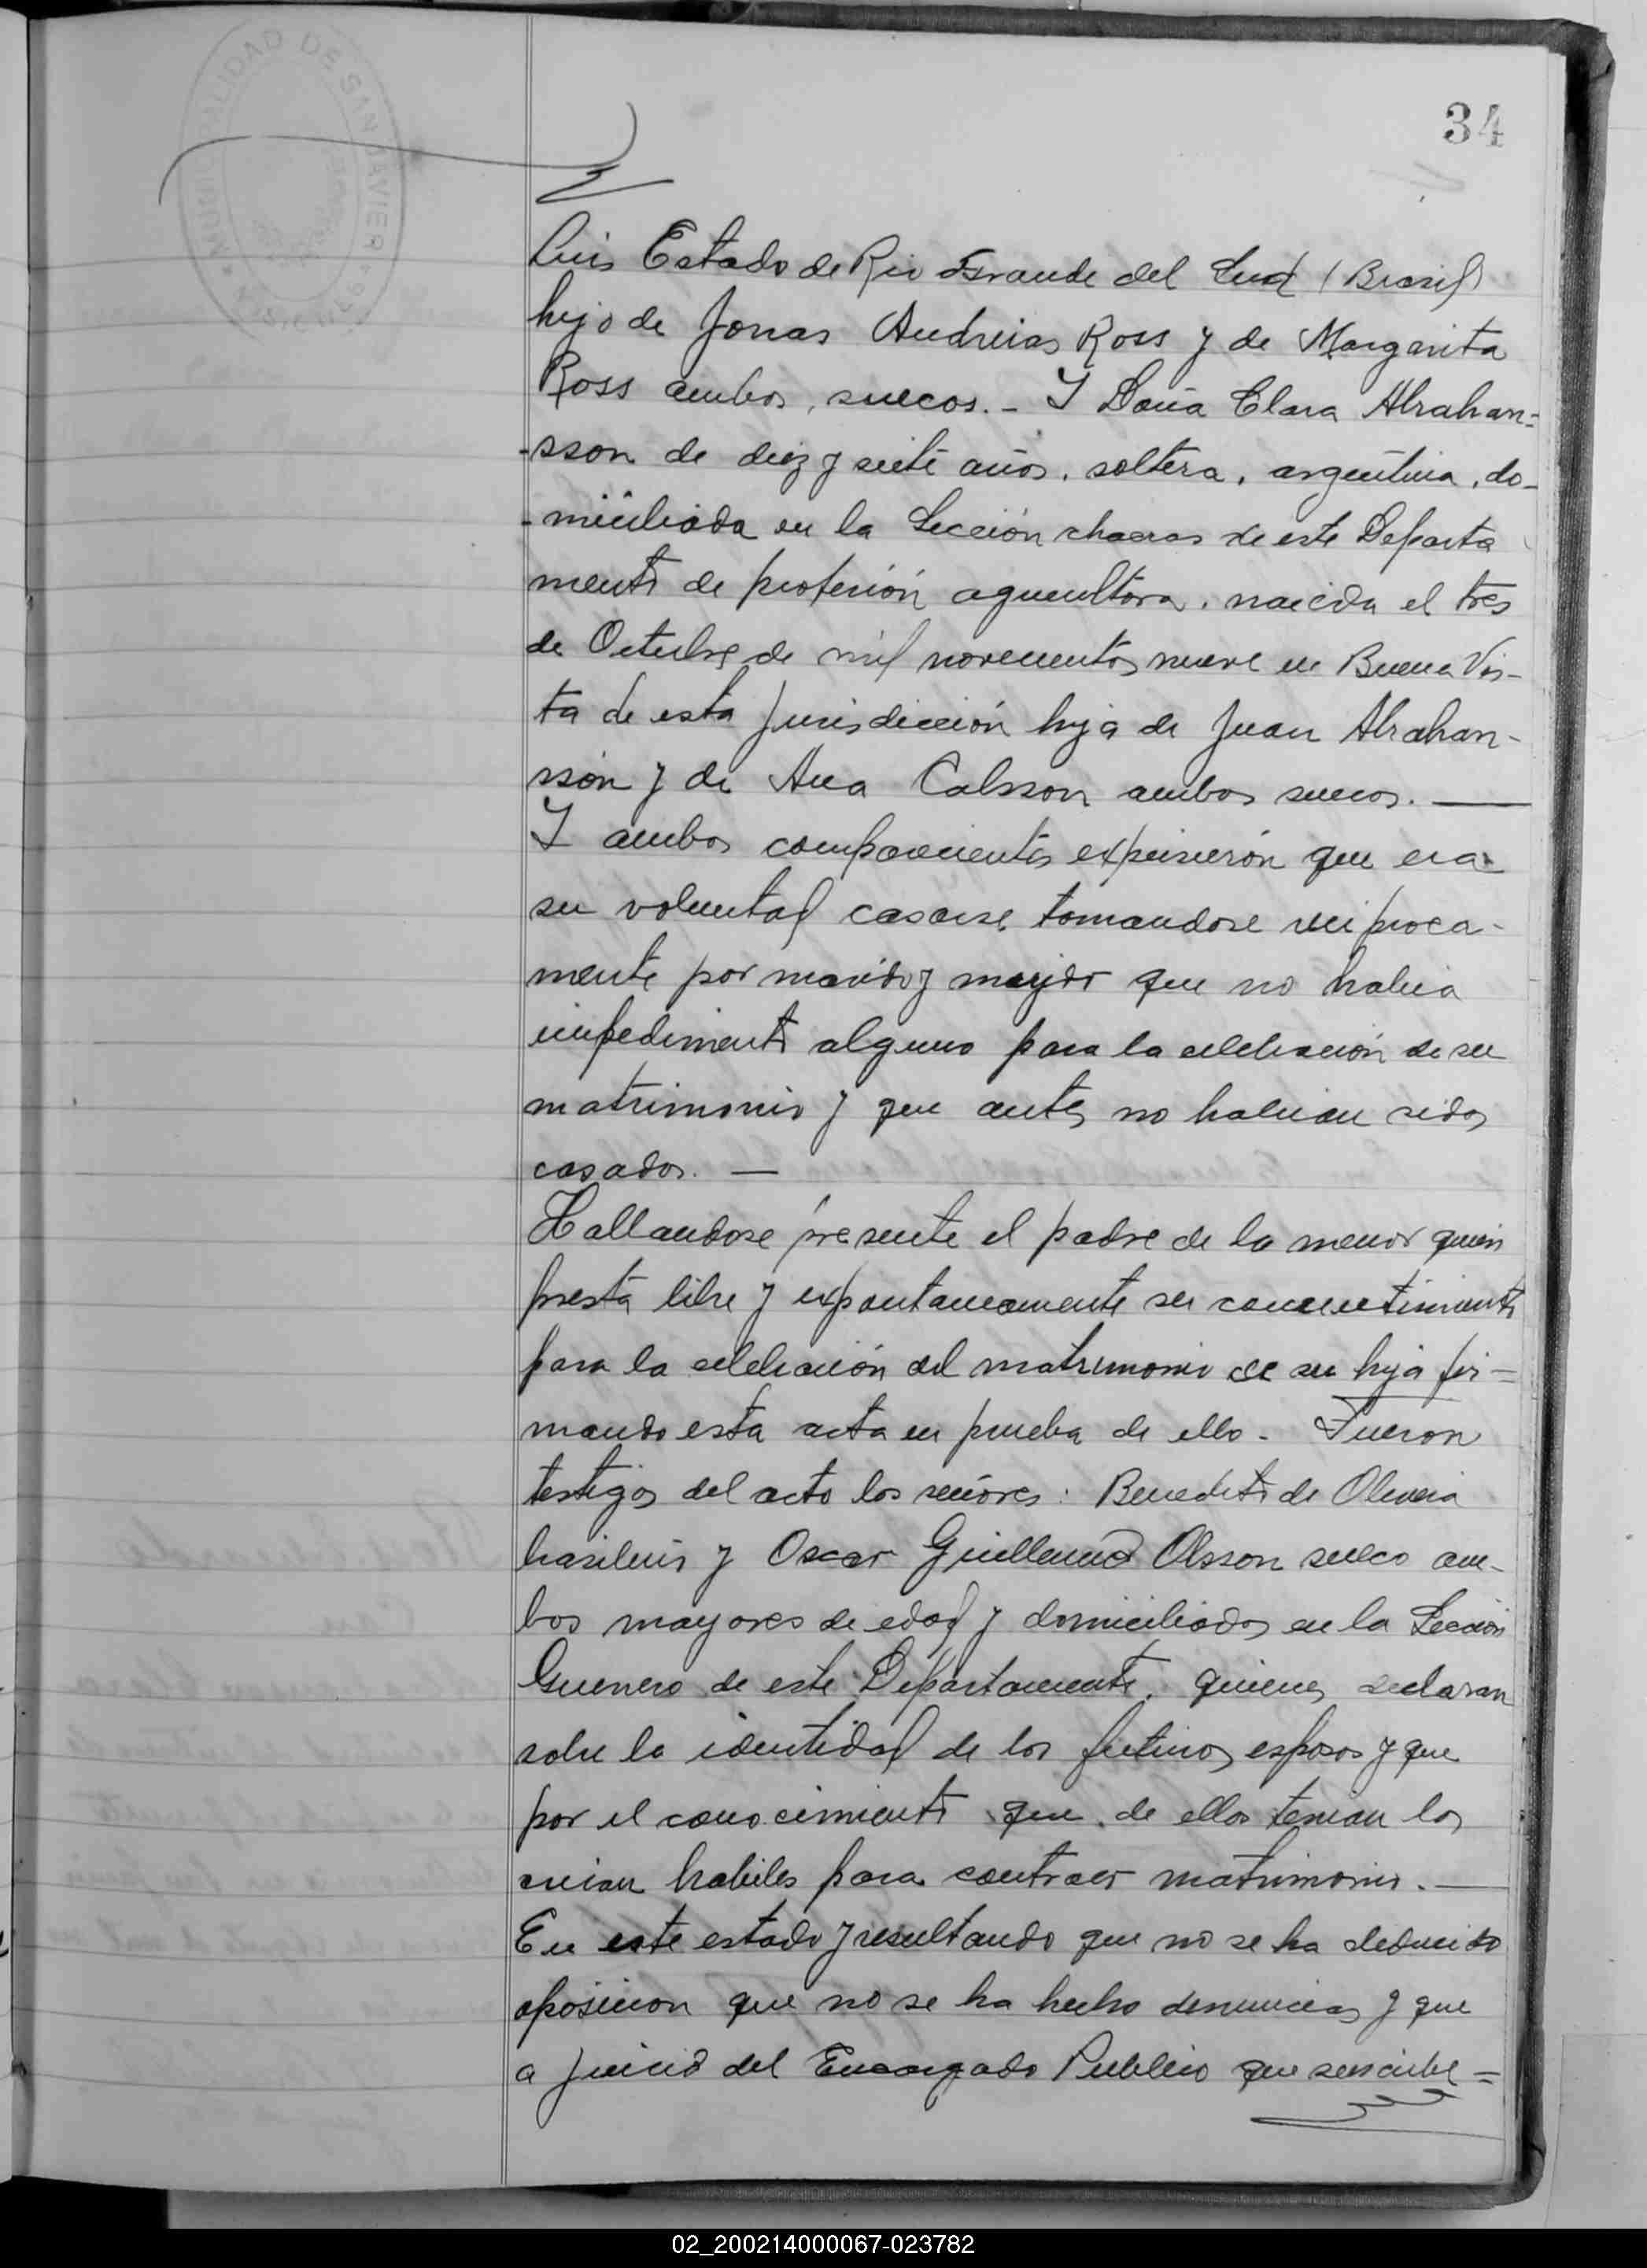 34
MUNICIPALIDAD DE SAN JAVIER
Luis Estado de Rio Grande del Sud (Brasil)
hijo de Jonas Andreias Ross y de Margarita
Ross ambos, suecos. - Y Doña Clara Abrahan=
-sson de diez y siete años, soltera, argentina, do-
-miciliada en la Sección chacras de este Departa
mento de profesión agricultora, nacida el tres
de Octubre de mil novecientos nueve en Buena Vis-
ta de esta jurisdicción hija de Juan Abrahan-
sson y de Ana Calsson ambos suecos. —
Y ambos comparecientes expusierón que era
su voluntad casarse tomandose reciproca-
mente por marido y mujer que no habia
impedimento alguno para la celebración de su
matrimonio y que antes no habian sidos
casados. —
Hallandose presente el padre de la menor quien
presta libre y expontaneamente su concentimiento
para la celebración del matrimonio de su hija fir=
mando esta acta en prueba de ello. Fueron
testigos del acto los señores: Benedito de Oliveira
brasileño y Oscar Guillermo Olsson sueco am-
bos mayores de edad y domiciliados en la Sección
Guerrero de este Departamento, quienes declaran
sobre la identidad de los futuros esposos y que
por el conocimiento que de ellos tenian los
creian habiles para contraer matrimonio. —
En este estado y resultando que no se ha deducido
oposicion que no se ha hecho denuncias y que
a juicio del Encargado Publico que suscribe=
02_200214000067-023782